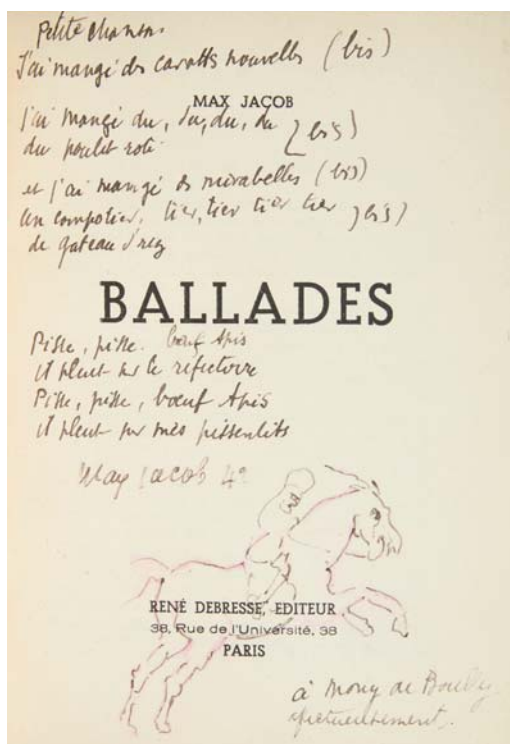 Petite chanson
J'ai mangé des carotts nouvelles (bis)
MAX JACOB
j'ai mangé du, du, du, du } bis)
du poulet roti
et j'ai mangé des mirabelles (bis)
un compotier, tier, tier tier tier } bis)
de gateau d'riz
BALLADES
Pisse, pisse. bœuf Apis
il pleut sur le refectoire
Pisse, pisse, bœuf Apis
il pleut sur mes pissenlits
Max Jacob 42
RENÉ DEBRESSE, EDITEUR
38, Rue de l'Université, 38
PARIS
à Mony de Boully
affectueusement.